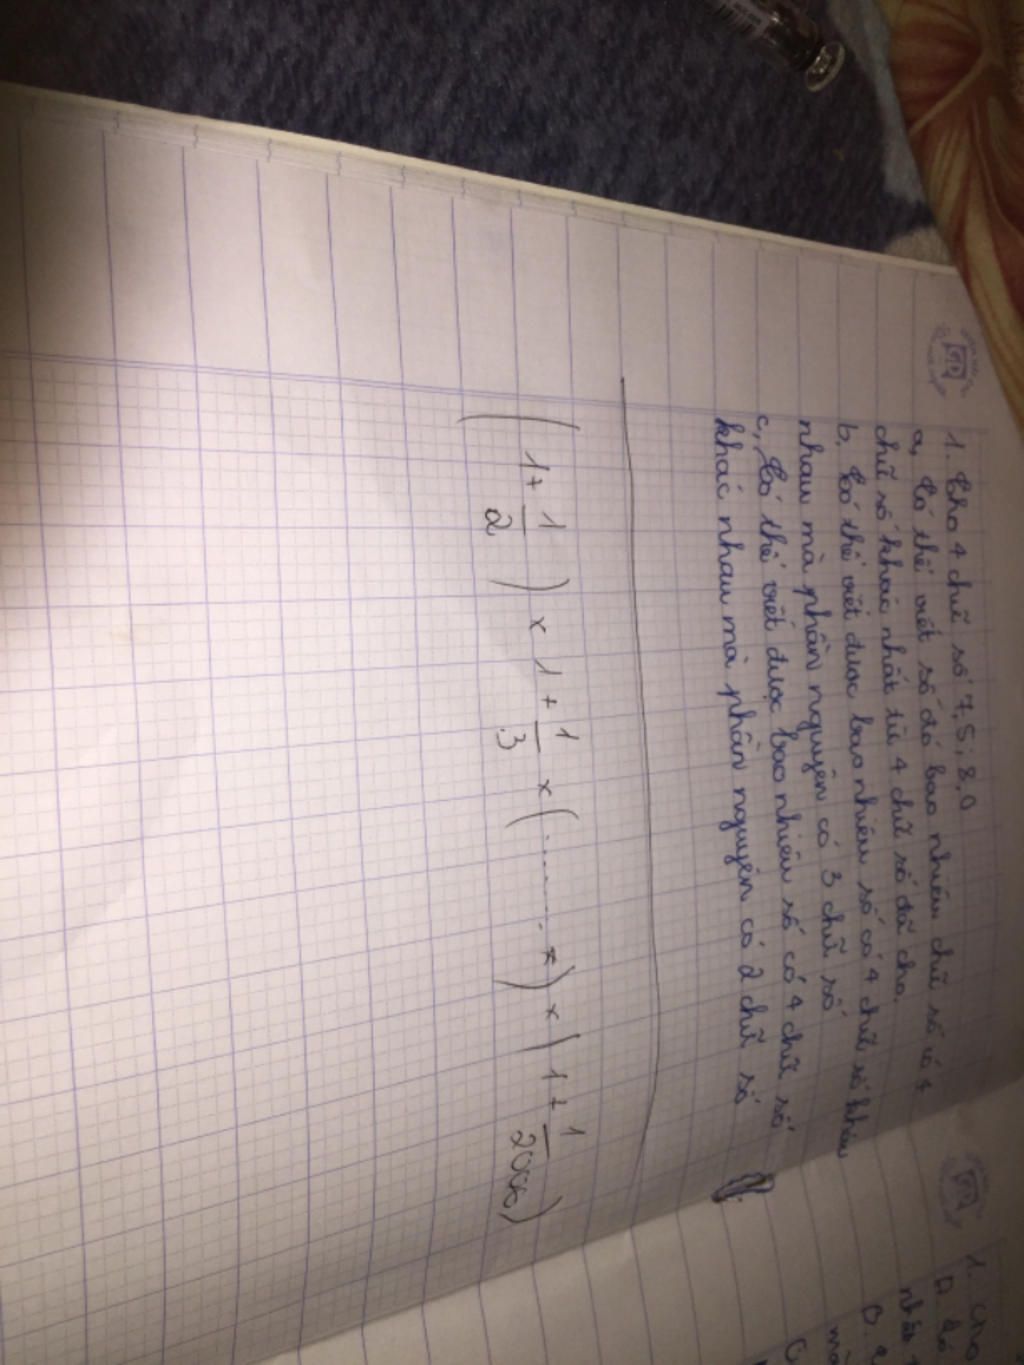 1. Cho 4 chữ số 7, 5; 8, 0
a, Có thể viết số đó bao nhiêu chữ số có 4
chữ số khác nhất từ 4 chữ số đã cho.
b, Có thể viết được bao nhiêu số có 4 chữ số khác
nhau mà phần nguyên có 3 chữ số
c, Có thể viết được bao nhiêu số có 4 chữ số
khác nhau mà phần nguyên có 2 chữ số
( 1 + 1/2 ) x 1 + 1/3 x ( ........ ) x ( 1 + 1/2006 )
1. Cho